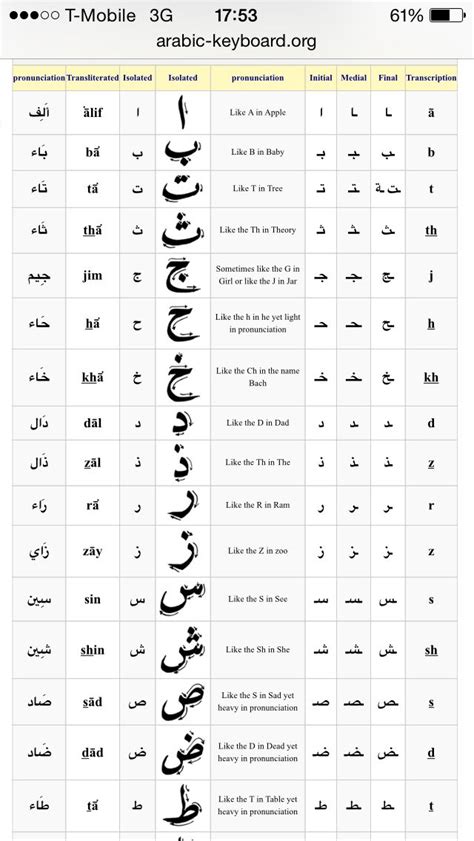 T-Mobile 3G 17:53 61%
arabic-keyboard.org
pronunciation Transliterated Isolated Isolated pronunciation Initial Medial Final Transcription
أَلِف ālif ا ا Like A in Apple ا ـا ـا ā
بَاء bā ب ب Like B in Baby بـ ـبـ ـب b
تَاء tā ت ت Like T in Tree تـ ـتـ ـة ـت t
ثَاء thā ث ث Like the Th in Theory ثـ ـثـ ـث th
جِيم jim ج ج Sometimes like the G in Girl or like the J in Jar جـ ـجـ ـج j
حَاء hā ح ح Like the h in he yet light in pronunciation حـ ـحـ ـح h
خَاء khā خ خ Like the Ch in the name Bach خـ ـخـ ـخ kh
دَال dāl د د Like the D in Dad د ـد ـد d
ذَال zāl ذ ذ Like the Th in The ذ ـذ ـذ z
رَاء rā ر ر Like the R in Ram ر ـر ـر r
زَاي zāy ز ز Like the Z in zoo ز ـز ـز z
سِين sin س س Like the S in See سـ ـسـ ـس s
شِين shin ش ش Like the Sh in She شـ ـشـ ـش sh
صَاد sād ص ص Like the S in Sad yet heavy in pronunciation صـ ـصـ ـص s
ضَاد dād ض ض Like the D in Dead yet heavy in pronunciation ضـ ـضـ ـض d
طَاء tā ط ط Like the T in Table yet heavy in pronunciation طـ ـطـ ـط t